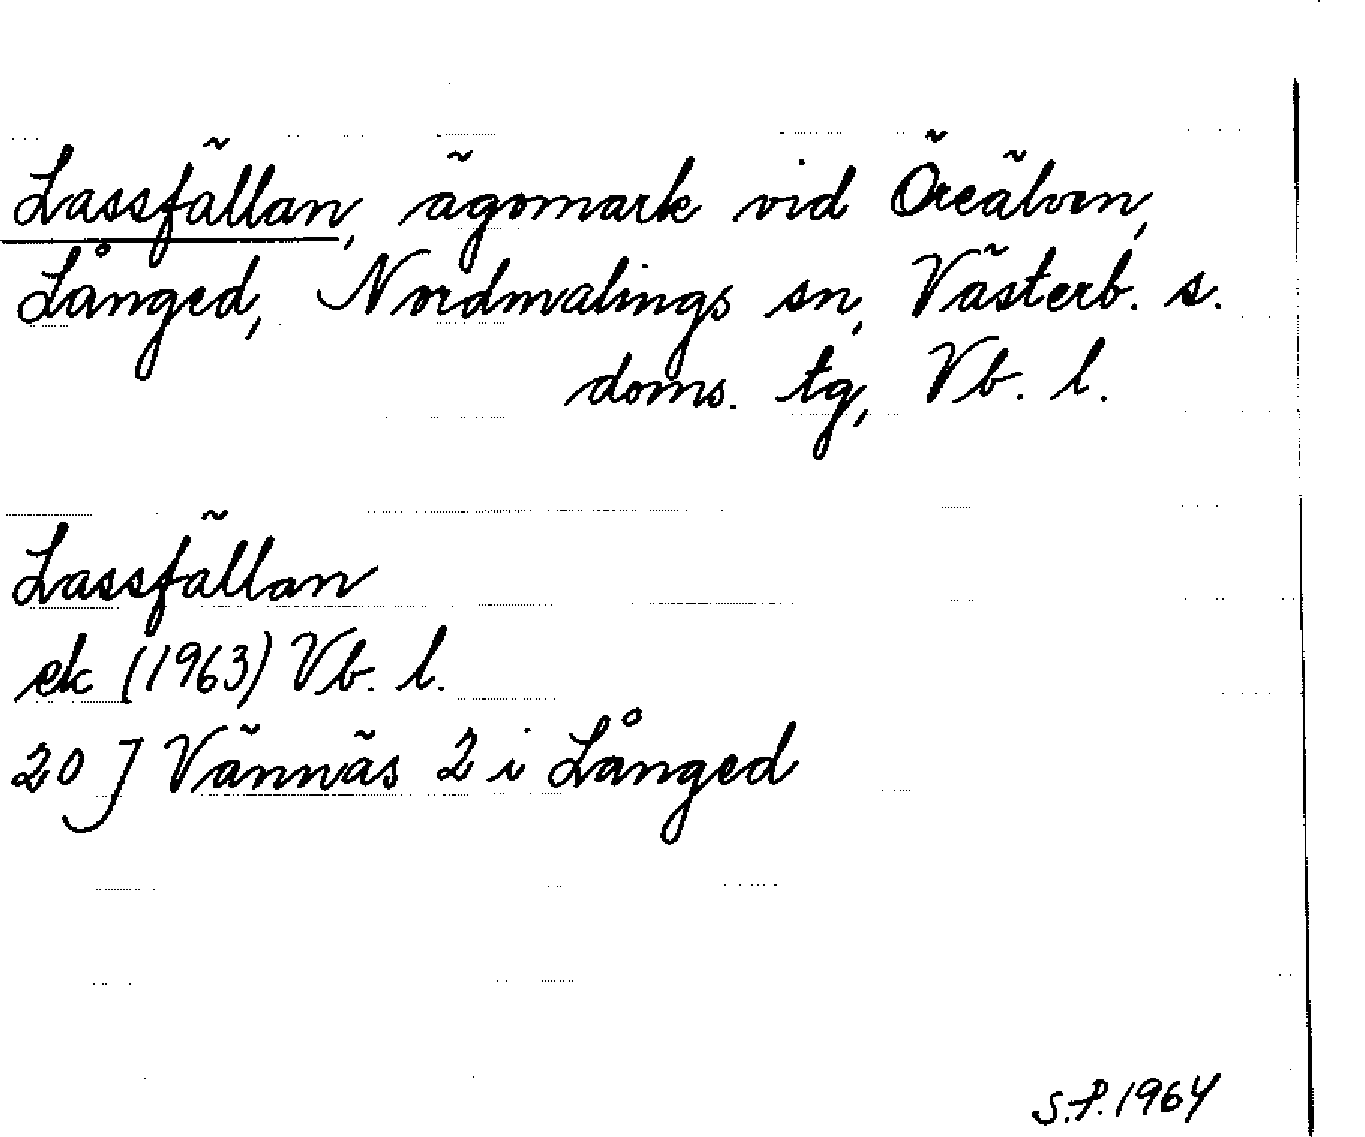 Lassfällan, ägomark vid Öreälven,
Långed, Nordmalings sn, Västerb. s.
doms. tg, Vb. l.
Lassfällan
ek (1963) Vb. l.
20 J Vännäs 2 i Långed
S.P. 1964